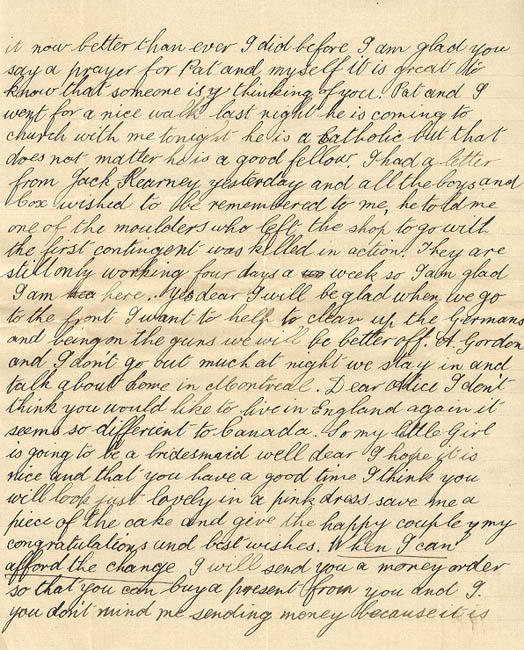 it now better than ever I did before I am glad you
say a prayer for Pat and myself it is great to
know that someone is y thinking of you. Pat and I
went for a nice walk last night he is coming to
church with me tonight he is a Catholic but that
does not matter he is a good fellow. I had a letter
from Jack Kearney yesterday and all the boys and
Cox wished to be remembered to me, he told me
one of the moulders who left the shop to go with
the first contingent was killed in action. They are
still only working four days a week so I am glad
I am here. Yes dear I will be glad when we go
to the front I want to help to clean up the Germans
and being on the guns we will be better off. A. Gordon
and I don't go out much at night we stay in and
talk about home in Montreal. Dear Alice I don't
think you would like to live in England again it
seems so different to Canada. So my little Girl
is going to be a bridesmaid well dear I hope it is
nice and that you have a good time I think you
will look just lovely in a pink dress save me a
piece of the cake and give the happy couple my
congratulations and best wishes. When I can
afford the change I will send you a money order
so that you can buy a present from you and I.
you don't mind me sending money because it is